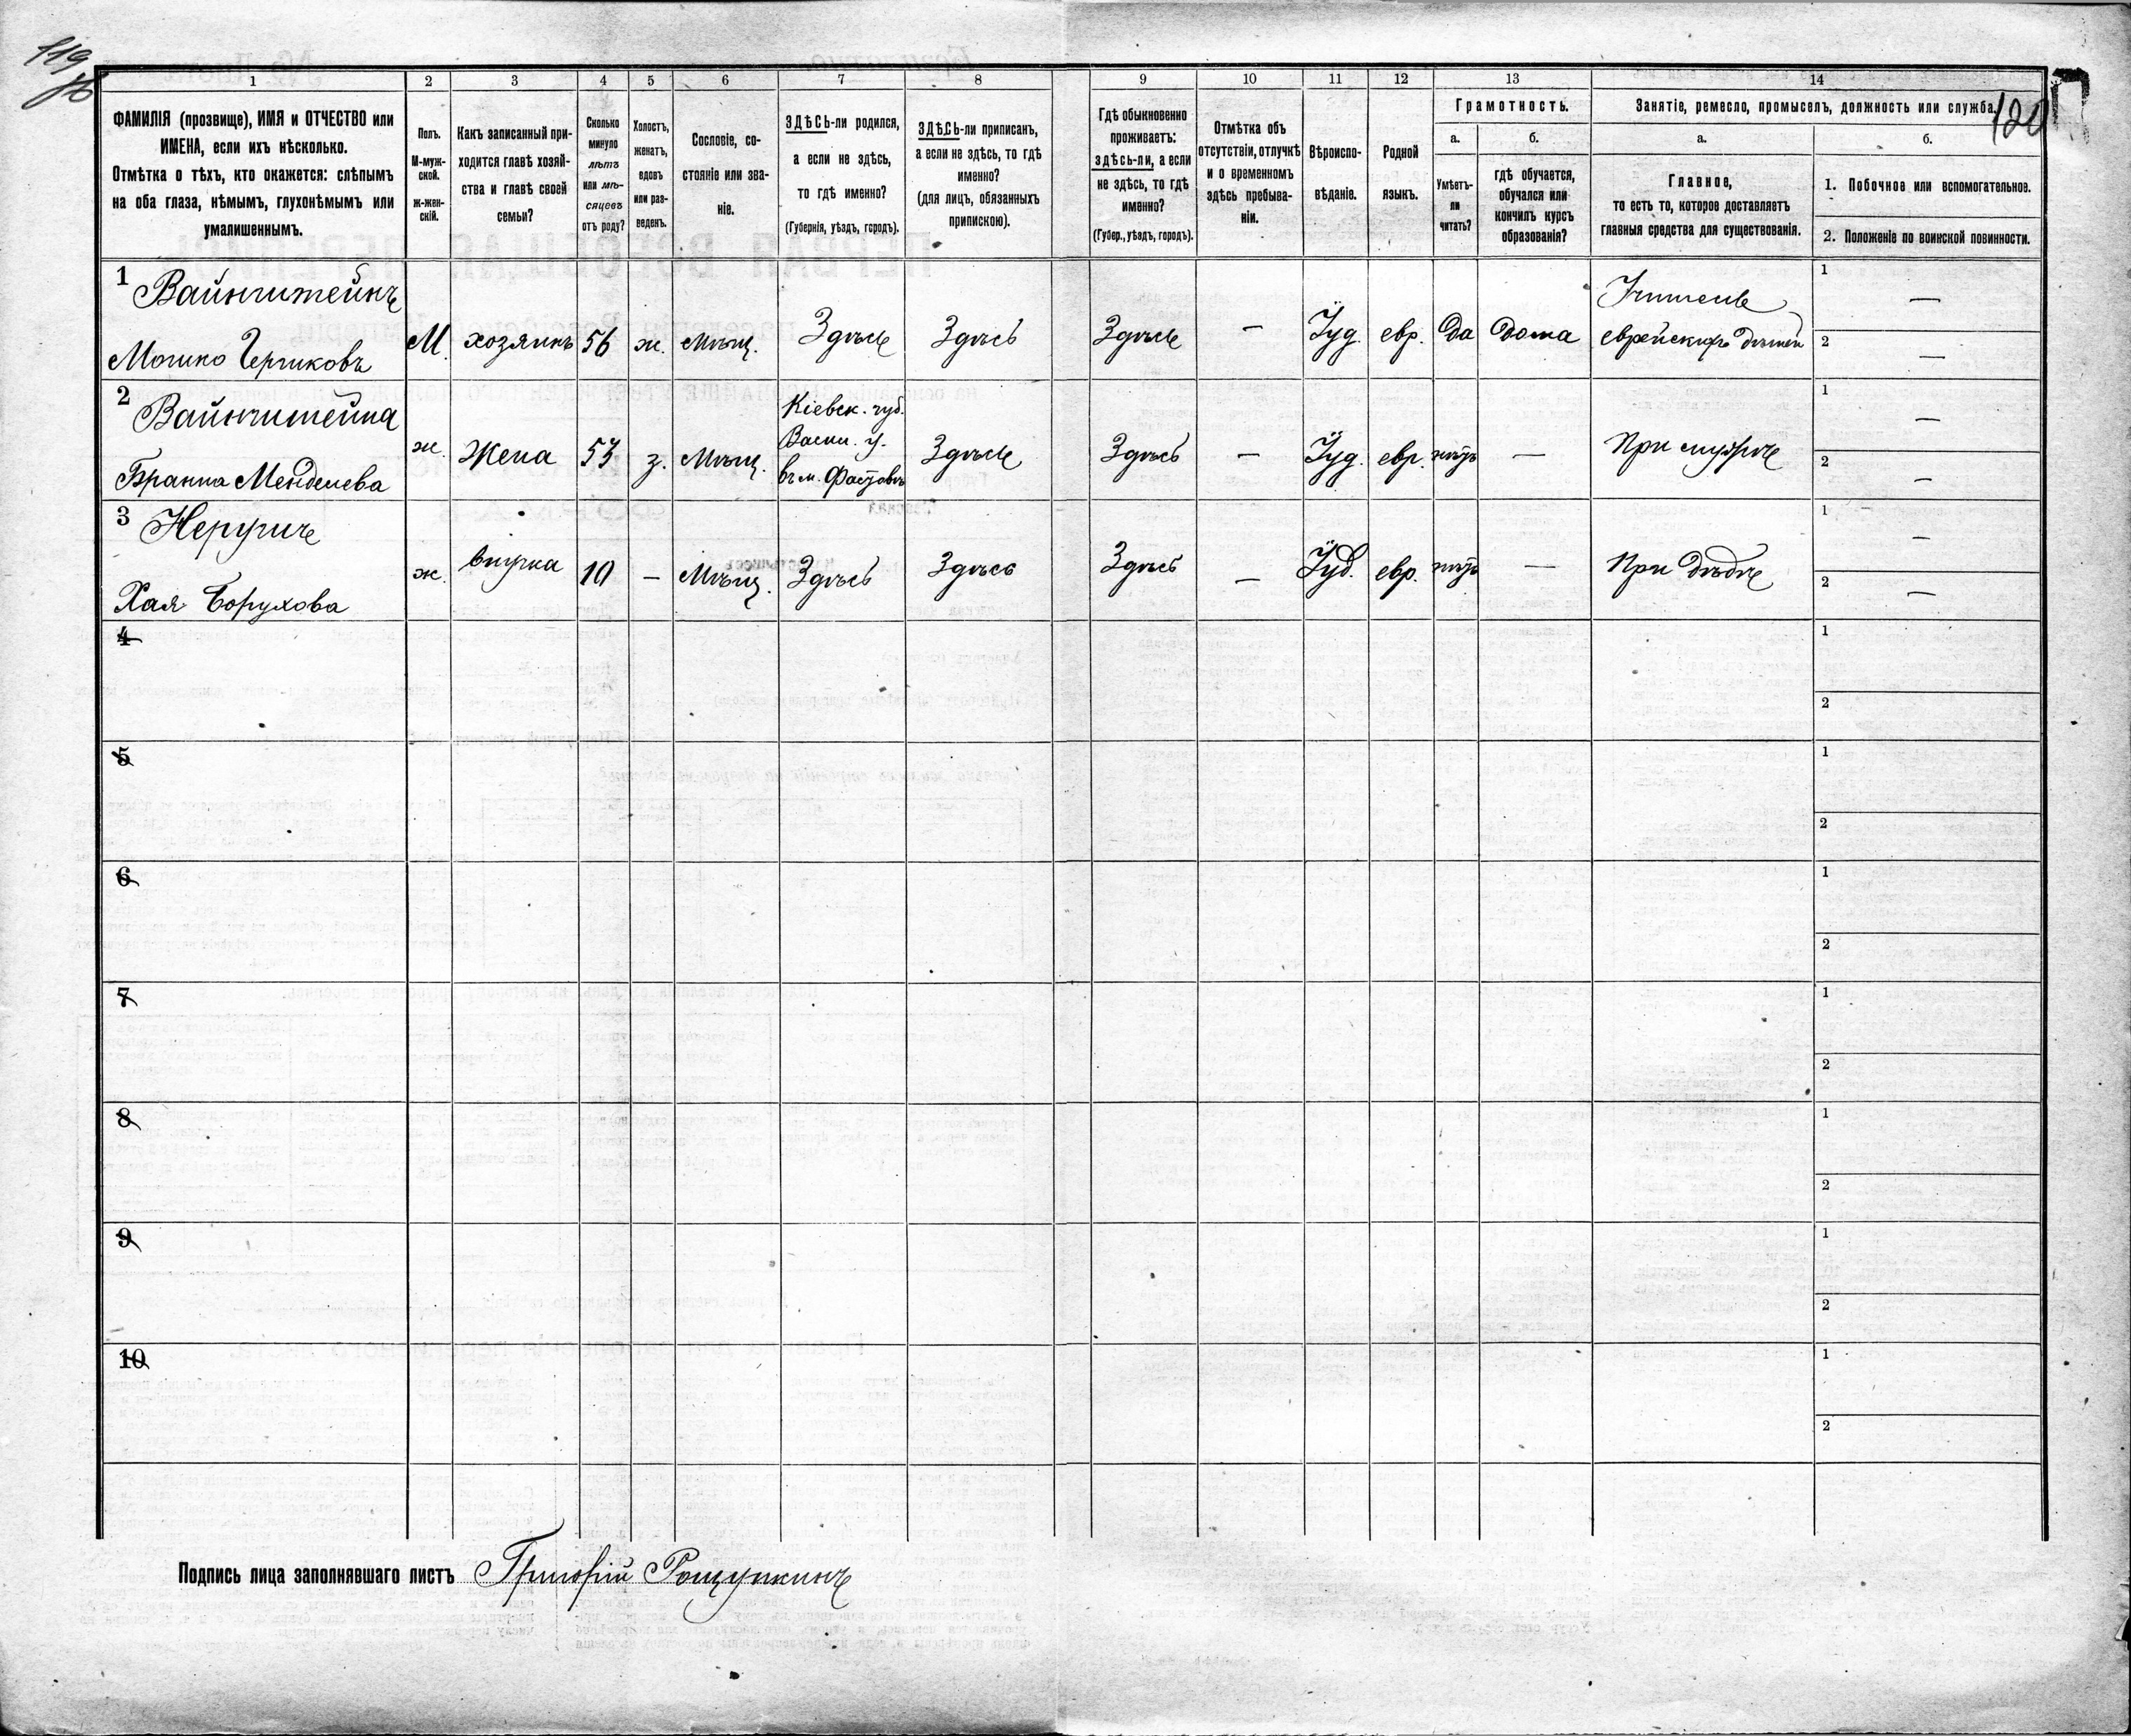 119
об
120
1
2
3
4
5
6
7
8
9
10
11
12
13
14
ФАМИЛІЯ (прозвище), ИМЯ и ОТЧЕСТВО или
ИМЕНА, если ихъ нѣсколько.
Отмѣтка о тѣхъ, кто окажется: слѣпымъ
на оба глаза, нѣмымъ, глухонѣмымъ или
умалишеннымъ.
Полъ.
М-муж-
ской.
ж-жен-
скій.
Какъ записанный при-
ходится главѣ хозяй-
ства и главѣ своей
семьи?
Сколько
минуло
лѣтъ
или мѣ-
сяцевъ
отъ роду?
Холостъ,
женатъ,
вдовъ
или раз-
веденъ.
Сословіе, со-
стояніе или зва-
ніе.
ЗДѢСЬ-ли родился,
а если не здѣсь,
то гдѣ именно?
(Губернія, уѣздъ, городъ).
ЗДѢСЬ-ли приписанъ,
а если не здѣсь, то гдѣ
именно?
(для лицъ, обязанныхъ
припискою).
Гдѣ обыкновенно
проживаетъ:
здѣсь-ли, а если
не здѣсь, то гдѣ
именно?
(Губер., уѣздъ, городъ).
Отмѣтка объ
отсутствіи, отлучкѣ
и о временномъ
здѣсь пребыва-
ніи.
Вѣроиспо-
вѣданіе.
Родной
языкъ.
Грамотность.
а.
Умѣетъ-
ли
читать?
б.
гдѣ обучается,
обучался или
кончилъ курсъ
образованія?
Занятіе, ремесло, промыселъ, должность или служба.
а.
Главное,
то есть то, которое доставляетъ
главныя средства для существованія.
б.
1. Побочное или вспомогательное.
2. Положеніе по воинской повинности.
1 Вайнштейнъ
Мошко Гершковъ
М.
хозяинъ
56
ж.
Мѣщ.
Здѣсь
Здѣсь
Здѣсь
—
Іуд.
евр.
Да
Дома
Учитель
еврейскихъ дѣтей
1 —
2 —
2 Вайнштейна
Бранна Менделева
ж.
Жена
53
з.
Мѣщ.
Кіевск. губ.
Васил. у.
въ м. Фастовѣ
Здѣсь
Здѣсь
—
Іуд.
евр.
нѣтъ
—
При мужѣ
1 —
2 —
3
Хая Борухова
ж.
внучка
10
—
Мѣщ.
Здѣсь
Здѣсь
Здѣсь
—
Іуд.
евр.
нѣтъ
—
При дѣдѣ
1 —
2 —
4
1
2
5
1
2
6
1
2
7
1
2
8
1
2
9
1
2
10
1
2
Подпись лица заполнявшаго листъ Григорій Рощупкинъ